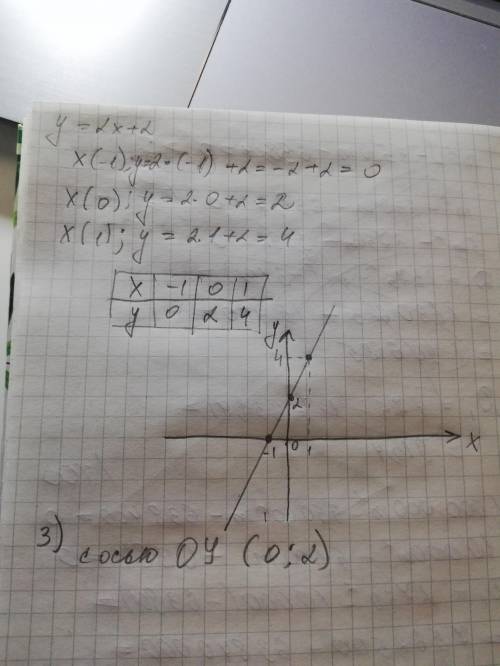 y = 2x+2
x(-1); y=2·(-1) +2=-2+2=0
x(0); y=2·0+2=2
x(1); y=2·1+2=4
x -1 0 1
y 0 2 4
y
4
2
-1 0 1 x
3) с осью OY (0;2)